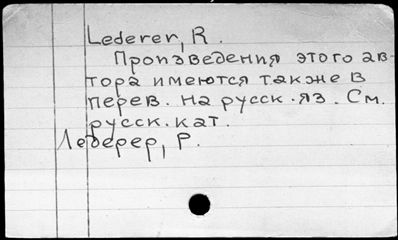 Lederer, R.
Произведения этого ав-
тора имеются также в
перев. на русск. яз. См.
русск. кат.
Ледерер, Р.